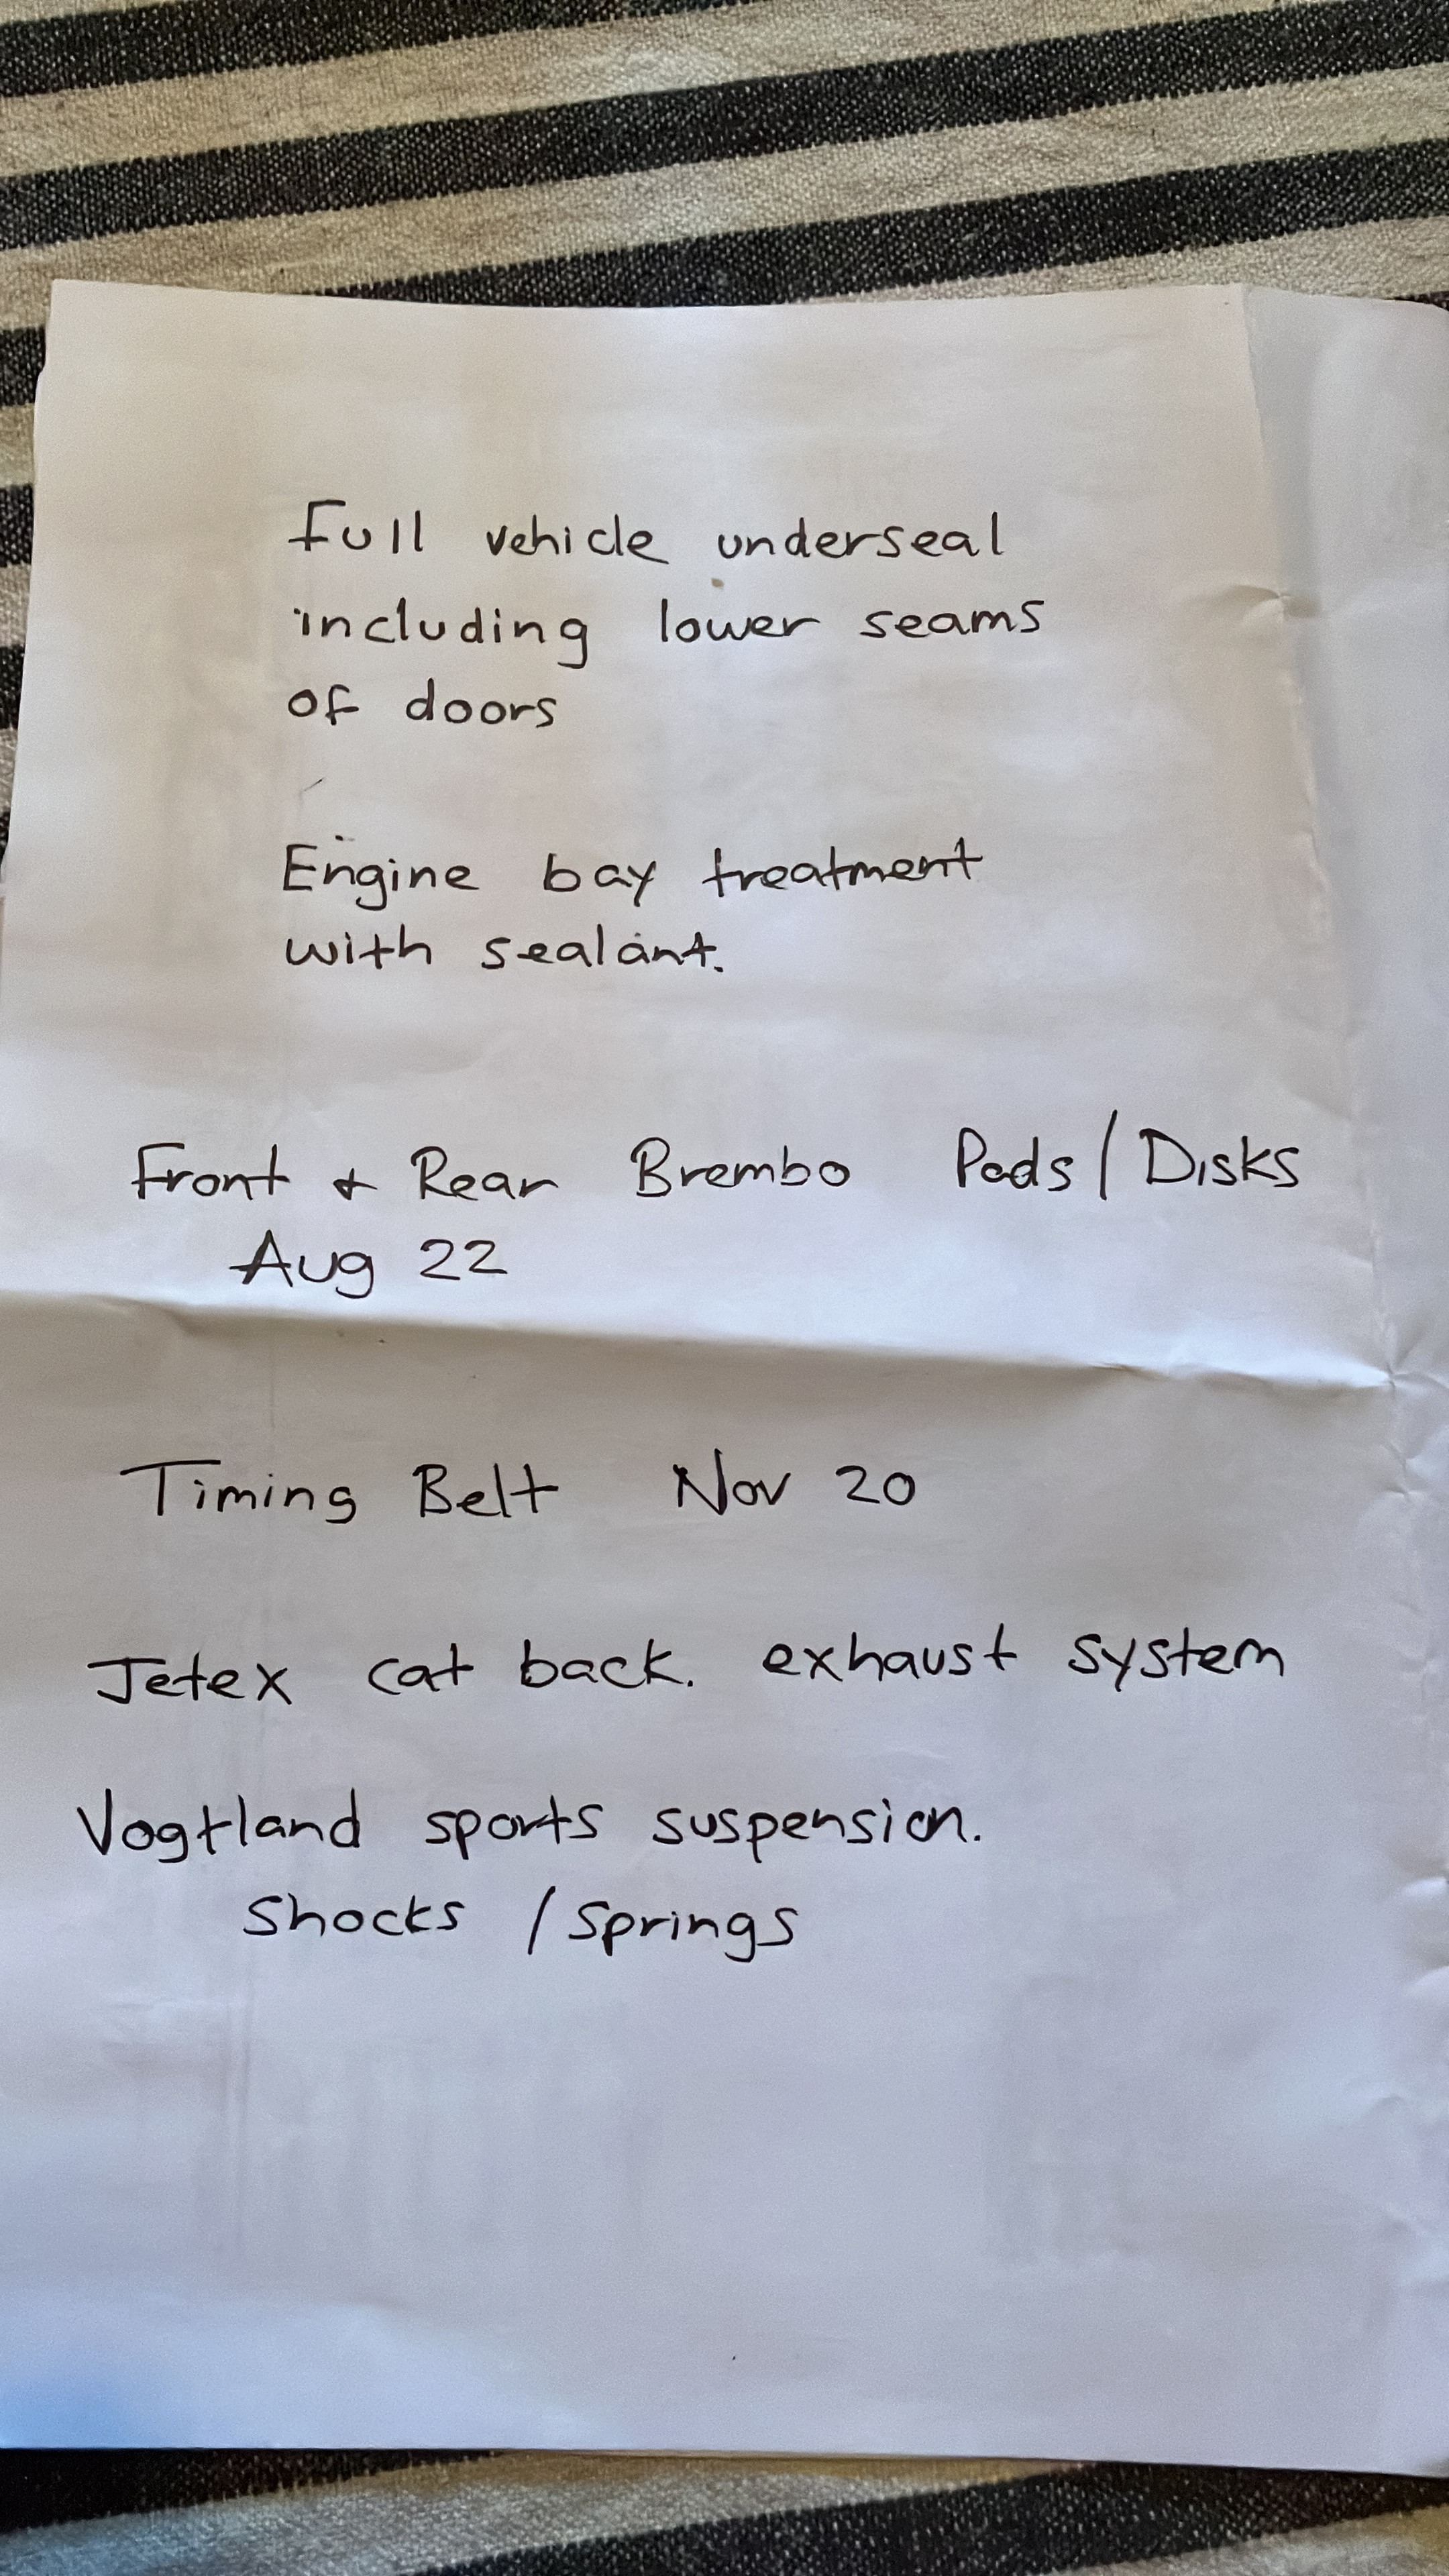 Full vehicle underseal
including lower seams
of doors
Engine bay treatment
with sealant.
Front + Rear Brembo Pads/Disks
Aug 22
Timing Belt Nov 20
Jetex cat back. exhaust system
Vogtland sports suspension.
Shocks / Springs